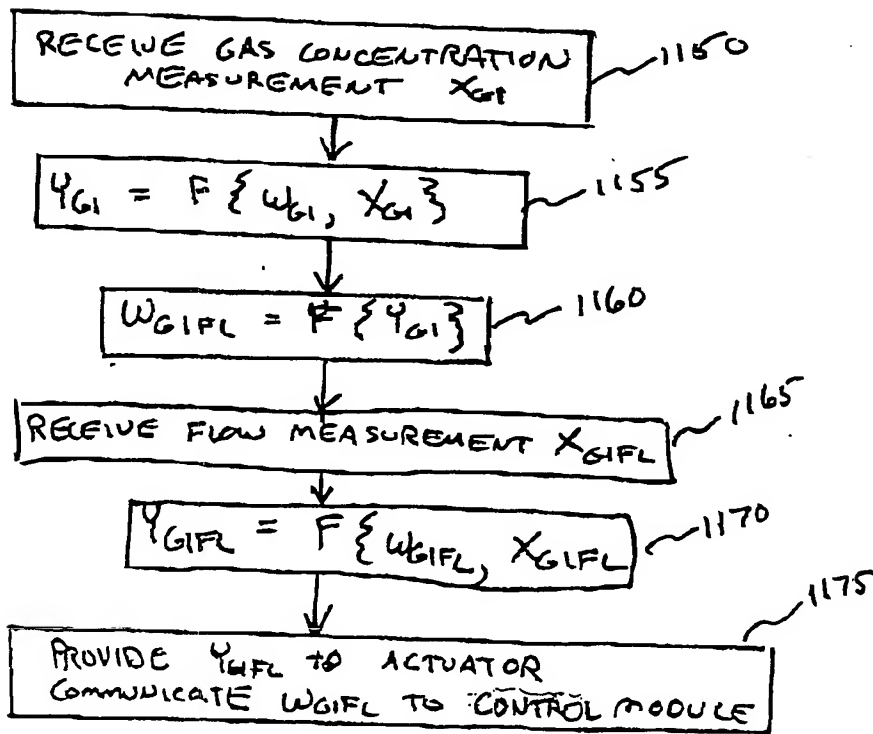 RECEIVE GAS CONCENTRATION
MEASUREMENT XG1
1150
YG1 = F { WG1, XG1}
1155
WG1FL = F {YG1}
1160
RECEIVE FLOW MEASUREMENT XG1FL
1165
YG1FL = F { WG1FL, XG1FL}
1170
PROVIDE YG1FL TO ACTUATOR
COMMUNICATE WG1FL TO CONTROL MODULE
1175